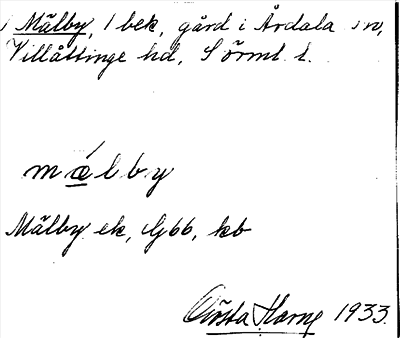 Mälby, 1 bek, gård i Årdala sn,
Villåttinge hd, Sörml. l.
mǽlby
Mälby ek, Gbb, kb
Gösta Harng 1933.